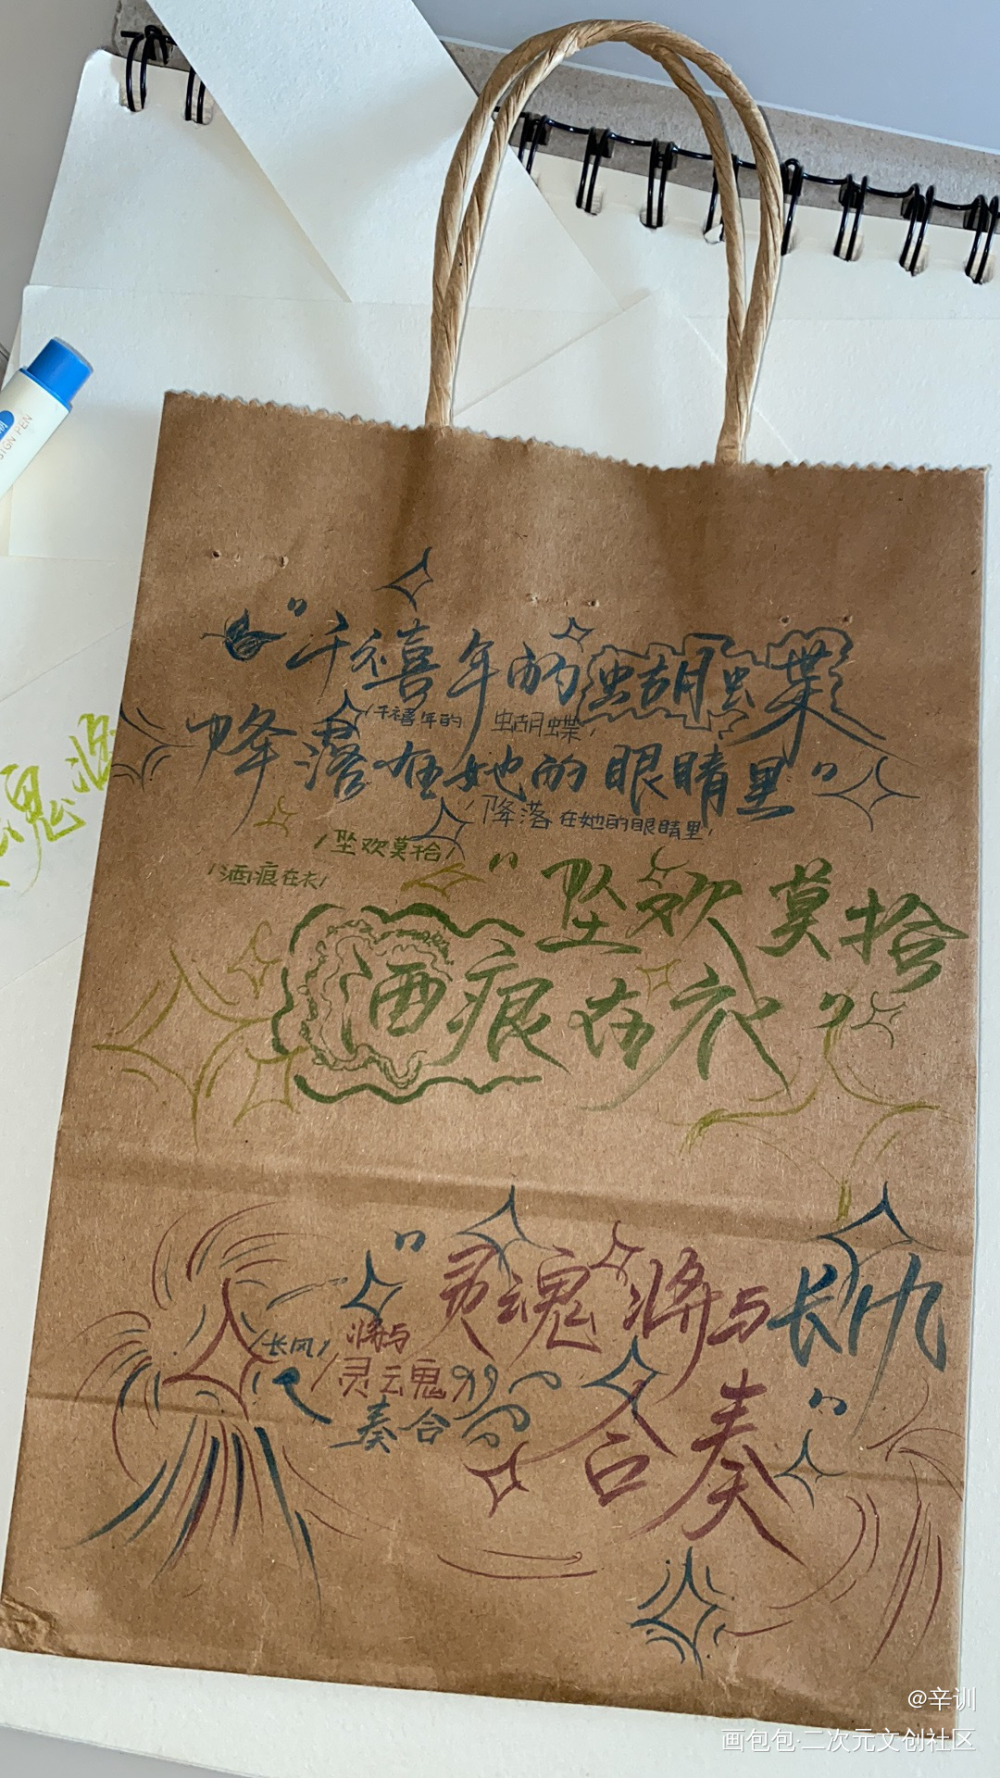 “千禧年的蝴蝶
/千禧年的 蝴蝶/
降落在她的眼睛里”
/降落在她的眼睛里/
/坠欢莫拾/
/酒痕在衣/
“坠欢莫拾
酒痕在衣”
“灵魂将与长风
合奏”
/长风/ 将与
/灵魂
奏合
SIGN PEN
魂 将
@辛训
画包包·二次元文创社区